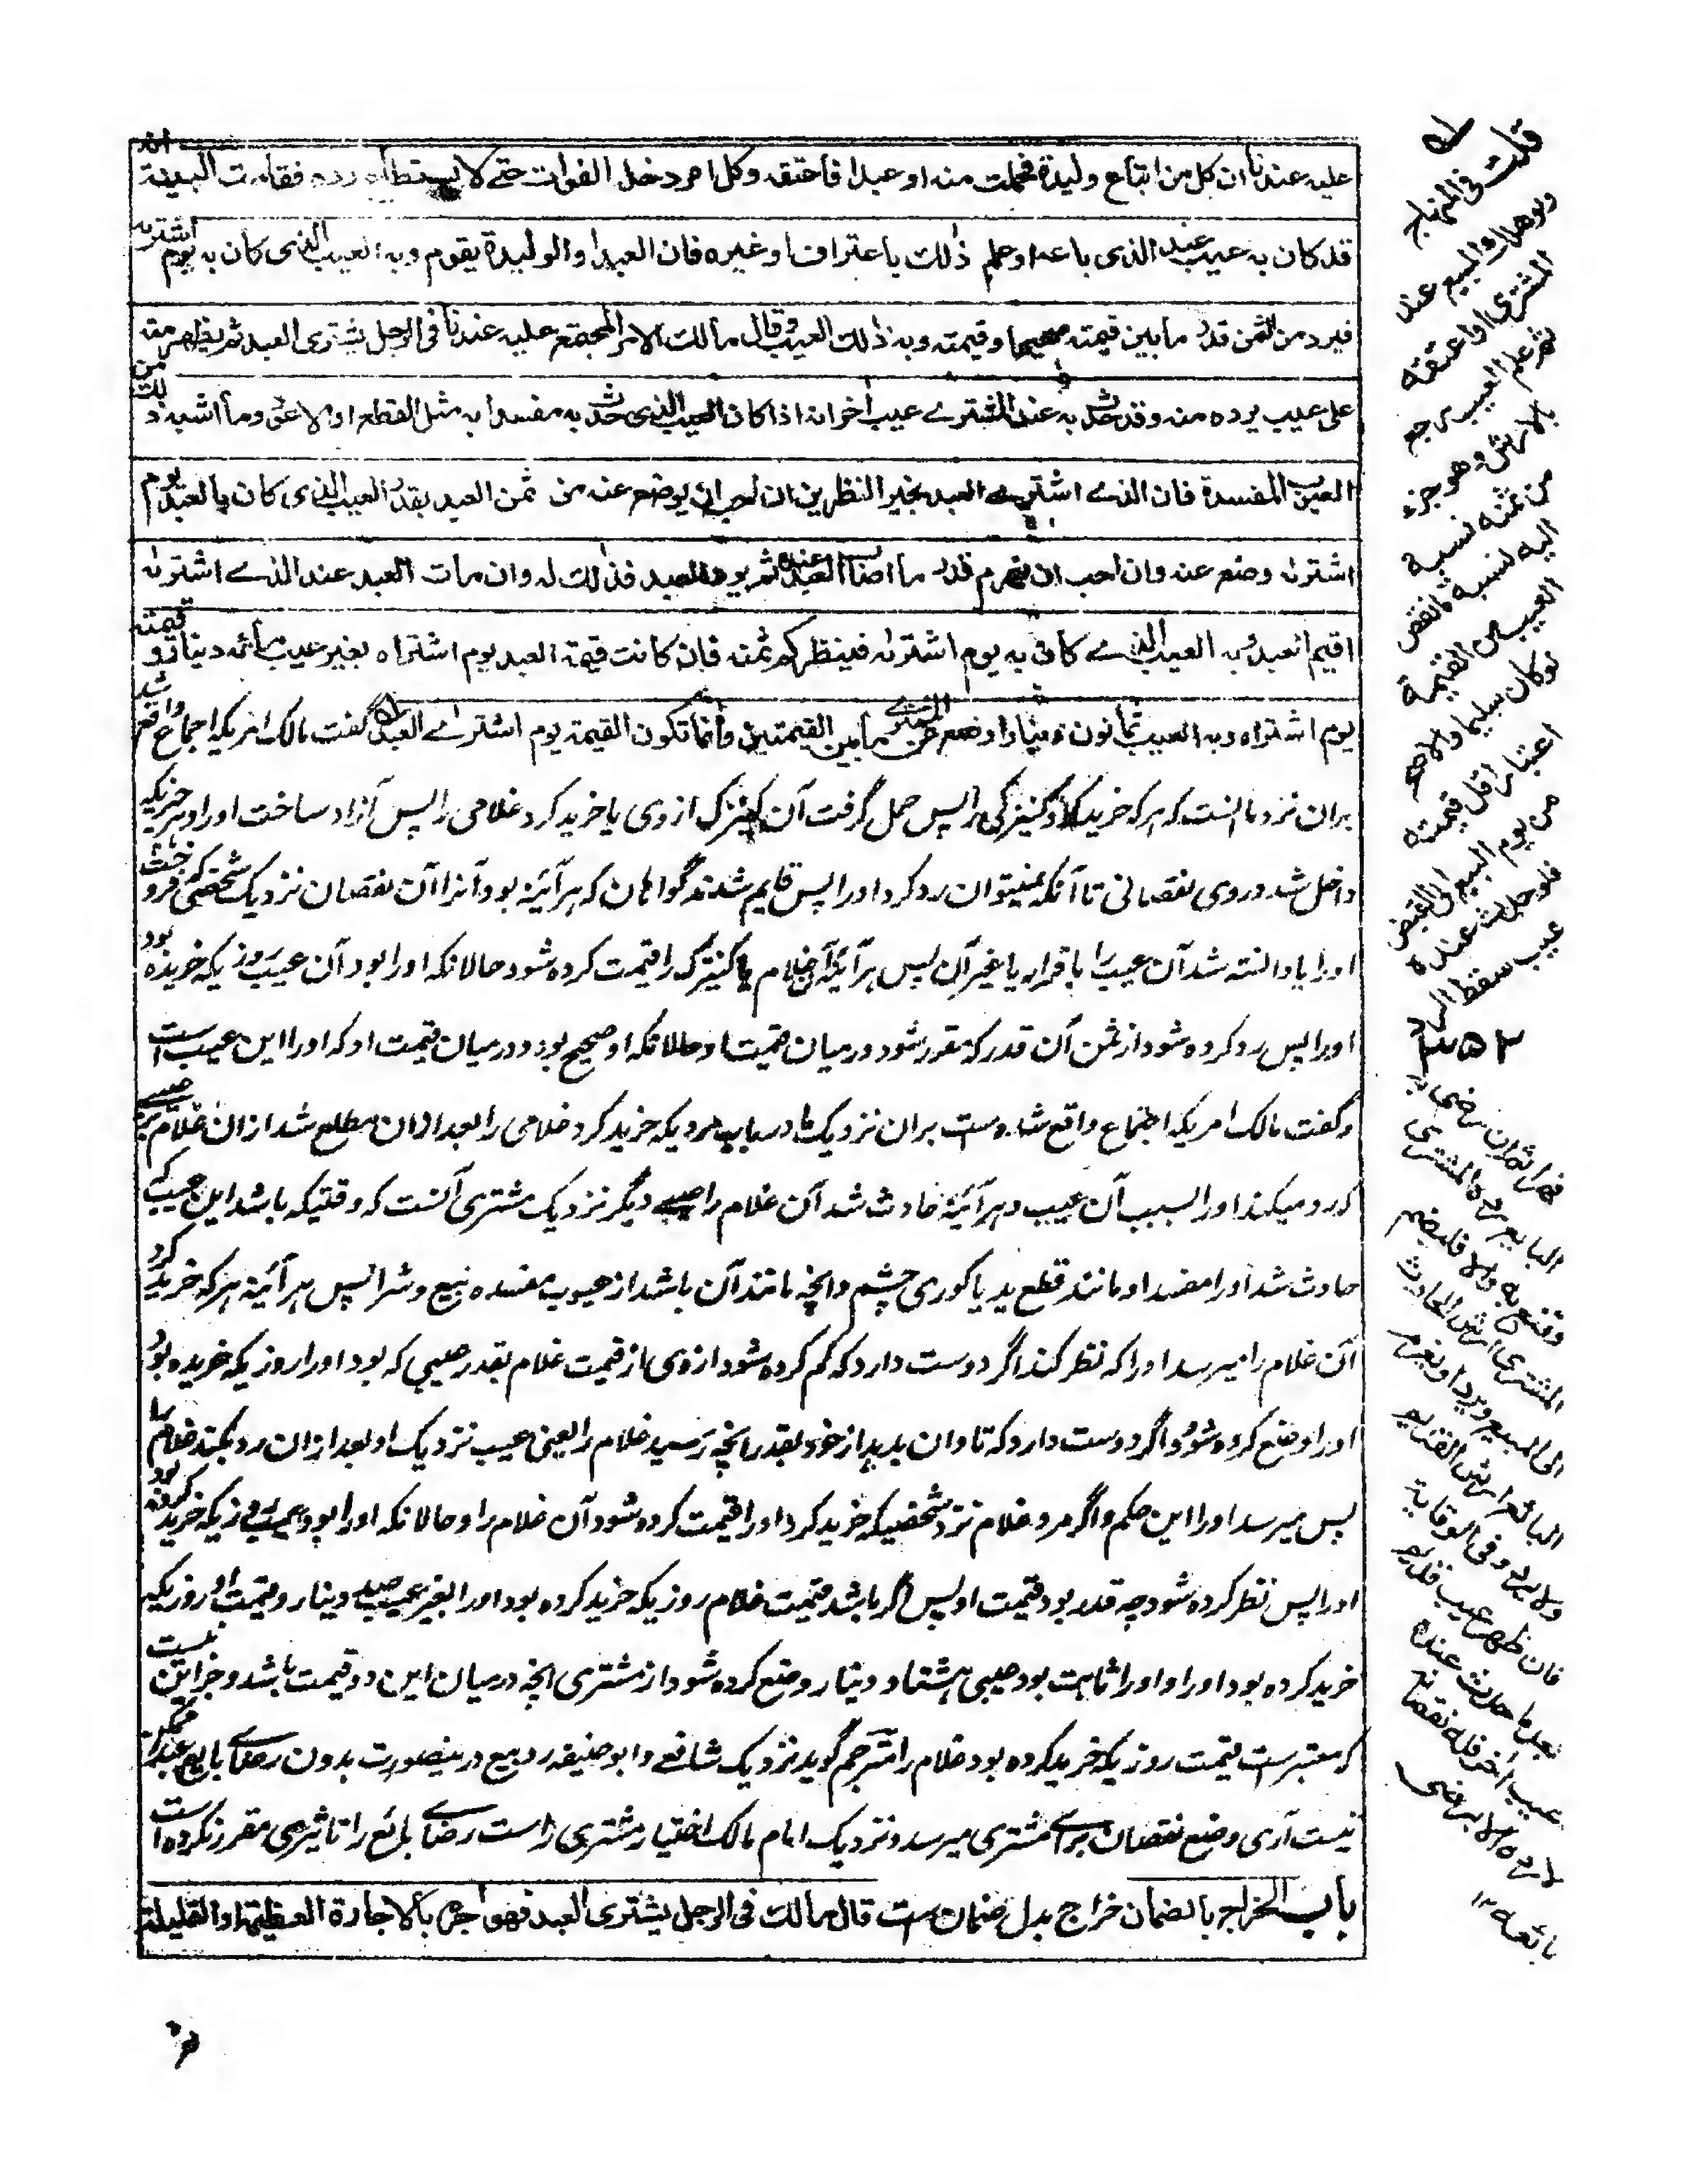 عليه عندنا ان كل من ابتاع وليدة فحملت منه او عبدا فاعتقه وكل امر دخله الفوات حتى لا يستطاع رده فقامت البينة انه
قد كان به عيب عند الذى باعه او علم ذلك باعتراف او غيره فان العبد او الوليدة يقوم وبه العيب الذى كان به يوم اشتراه
فيرد من الثمن قدر ما بين قيمته صحيحا وقيمته وبه ذلك العيب وقال مالك الامر المجتمع عليه عندنا فى الرجل يشترى العبد ثم يظهر منه
على عيب يرده منه وقد حدث به عند المشترے عيب اخر انه اذا كان العيب الذى حدث به مفسدا به مثل القطع او العور وما اشبه ذلك من
العيوب المفسدة فان الذے اشترے العبد بخير النظرين ان احب ان يوضع عنه من ثمن العبد بقدر العيب الذى كان بالعبد يوم
اشتراه وضع عنه وان احب ان يغرم قدر ما اصاب العبد عنده ثم يرد العبد فذلك له وان مات العبد عند الذے اشتراه
اقيم العبد وبه العيب الذے كان به يوم اشتراه فينظر كم ثمنه فان كانت قيمة العبد يوم اشتراه بغير عيب مائة دينار و
يوم اشتراه وبه العيب ثمانون دينارا وضع عن المشترے ما بين القيمتين وانما تكون القيمة يوم اشترے العبد گفت مالك امريكه اجماع واقع شد
بران نزد ما آنست كه هر كه خريد كرد كنيزكى را پس حمل گرفت آن كنيزك ازوى يا خريد كرد غلامى را پس آزاد ساخت او را و هر چيزيكه
داخل شد دروى نقصانى تا آنكه نميتوان رد كرد او را پس قايم شدند گواهان كه هر آئينه بود آنرا آن نقصان نزديك شخصى كه فروخت
او را يا دانسته شد آن عيب باقرار يا غير آن پس هر آئينه آن غلام يا كنيزك را قيمت كرده شود حالانكه او را بود آن عيب روزيكه خريده بود
او را پس رد كرده شود از ثمن آن قدر كه مقرر شود درميان قيمت او حالانكه او صحيح بود و درميان قيمت او كه او را اين عيب است
و گفت مالك امريكه اجماع واقع شده است بران نزديك ما در باب مرديكه خريد كرد غلامى را بعد ازان مطلع شد ازان غلام بر عيبے
كه رد ميكند او را بسبب آن عيب و هر آئينه حادث شد آن غلام را عيبے ديگر نزديك مشترى آنست كه وقتيكه باشد اين عيب كه
حادث شد او را مفسد او مانند قطع يد يا كورى چشم و آنچه مانند آن باشد از عيوب مفسده بيع و شرا پس هر آئينه هر كه خريد كرد
آن غلام را ميرسد او را كه نظر كند اگر دوست دارد كه كم كرده شود ازوى از قيمت غلام بقدر عيبى كه بود او را روزيكه خريده بود
او را وضع كرده شود و اگر دوست دارد كه تاوان بدهد از خود بقدر آنچه رسيد غلام را يعنى عيب نزديك او بعد ازان رد بكند غلام را
پس ميرسد او را اين حكم و اگر مرد غلام نزد شخصيكه خريد كرد او را قيمت كرده شود آن غلام را و حالانكه او را بود عيب روزيكه خريد كرده بود
او را پس نظر كرده شود چه قدر بود قيمت او پس اگر باشد قيمت غلام روزيكه خريد كرده بود او را بغير عيب صد دينار و قيمت او روزيكه
خريد كرده بود او را و او را ثابت بود عيبى هشتاد دينار وضع كرده شود از مشترى آنچه درميان اين دو قيمت باشد و جز اين نيست
كه معتبر است قيمت روزيكه خريد كرده بود غلام را مترجم گويد نزديك شافعے و ابو حنيفه رد بيع درينصورت بدون رضاے بايع ممكن
نيست آرى وضع نقصان براے مشترى ميرسد و نزديك امام مالك اختيار مشترى راست رضاے بائع را تاثيرى مقرر نكرده است
باب الخراج بالضمان خراج بدل ضمان است قال مالك فى الرجل يشترى العبد فهو اجره بالاجارة العظيمة او القليلة
قلت فى المنهاج
ولو هلك المبيع عند
المشترى او اعتقه
ثم علم العيب رجع
بالارش وهو جزء
من ثمنه نسبته
اليه نسبة ما نقص
العيب من القيمة
لو كان سليما والاصح
اعتبار اقل قيمته
من يوم البيع الى القبض
فلو حدث عنده
عيب سقط الرد
قهرا ثم ان رضى به
البايع رده المشترى
وقنع به والا فليضم
المشترى ارش الحادث
الى المبيع ويرد او يغرم
البائع ارش القديم
ولا يرد وفى الوقاية
فان ظهر عيب قديم
بعد ما حدث عنده
عيب اخر فله نقصانه
لا رده الا برضى
بائعه ١٢